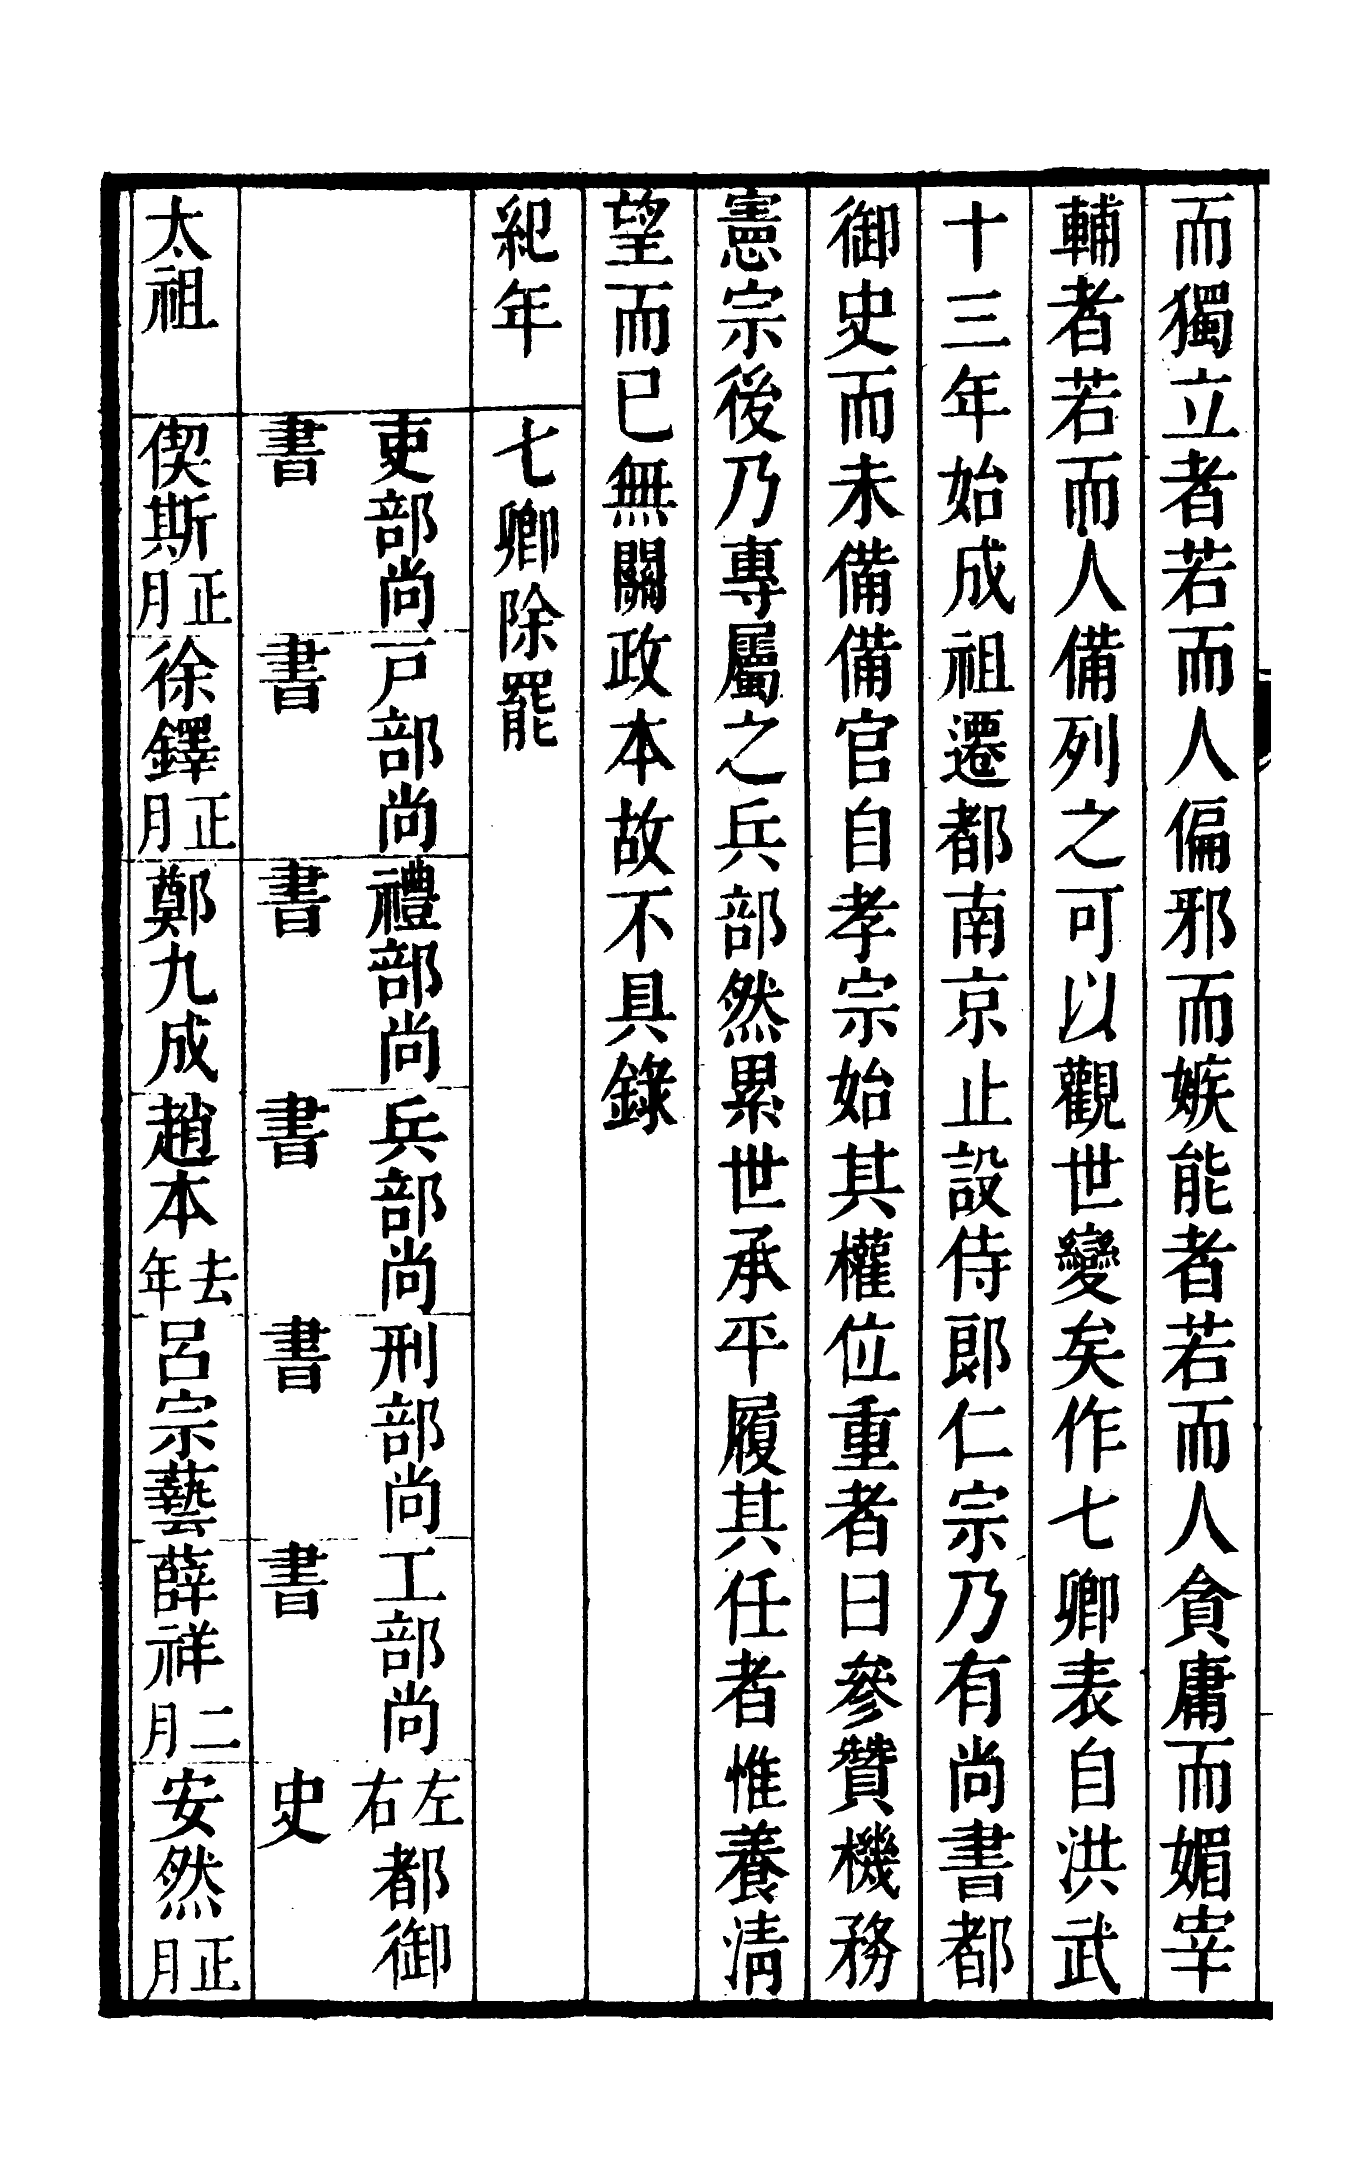 而獨立者若而人偏邪而嫉能者若而人貪庸而媚宰
輔者若而人備列之可以觀世變矣作七卿表自洪武
十三年始成祖遷都南京止設侍郎仁宗乃有尚書都
御史而未備備官自孝宗始其權位重者曰參贊機務
憲宗後乃專屬之兵部然累世承平履其任者惟養清
望而已無關政本故不具錄
紀年
七卿除罷
吏部尚書
戶部尚書
禮部尚書
兵部尚書
刑部尚書
工部尚書
左右都御史
太祖
偰斯正月
徐鐸正月
鄭九成
趙本去年
呂宗藝
薛祥二月
安然正月